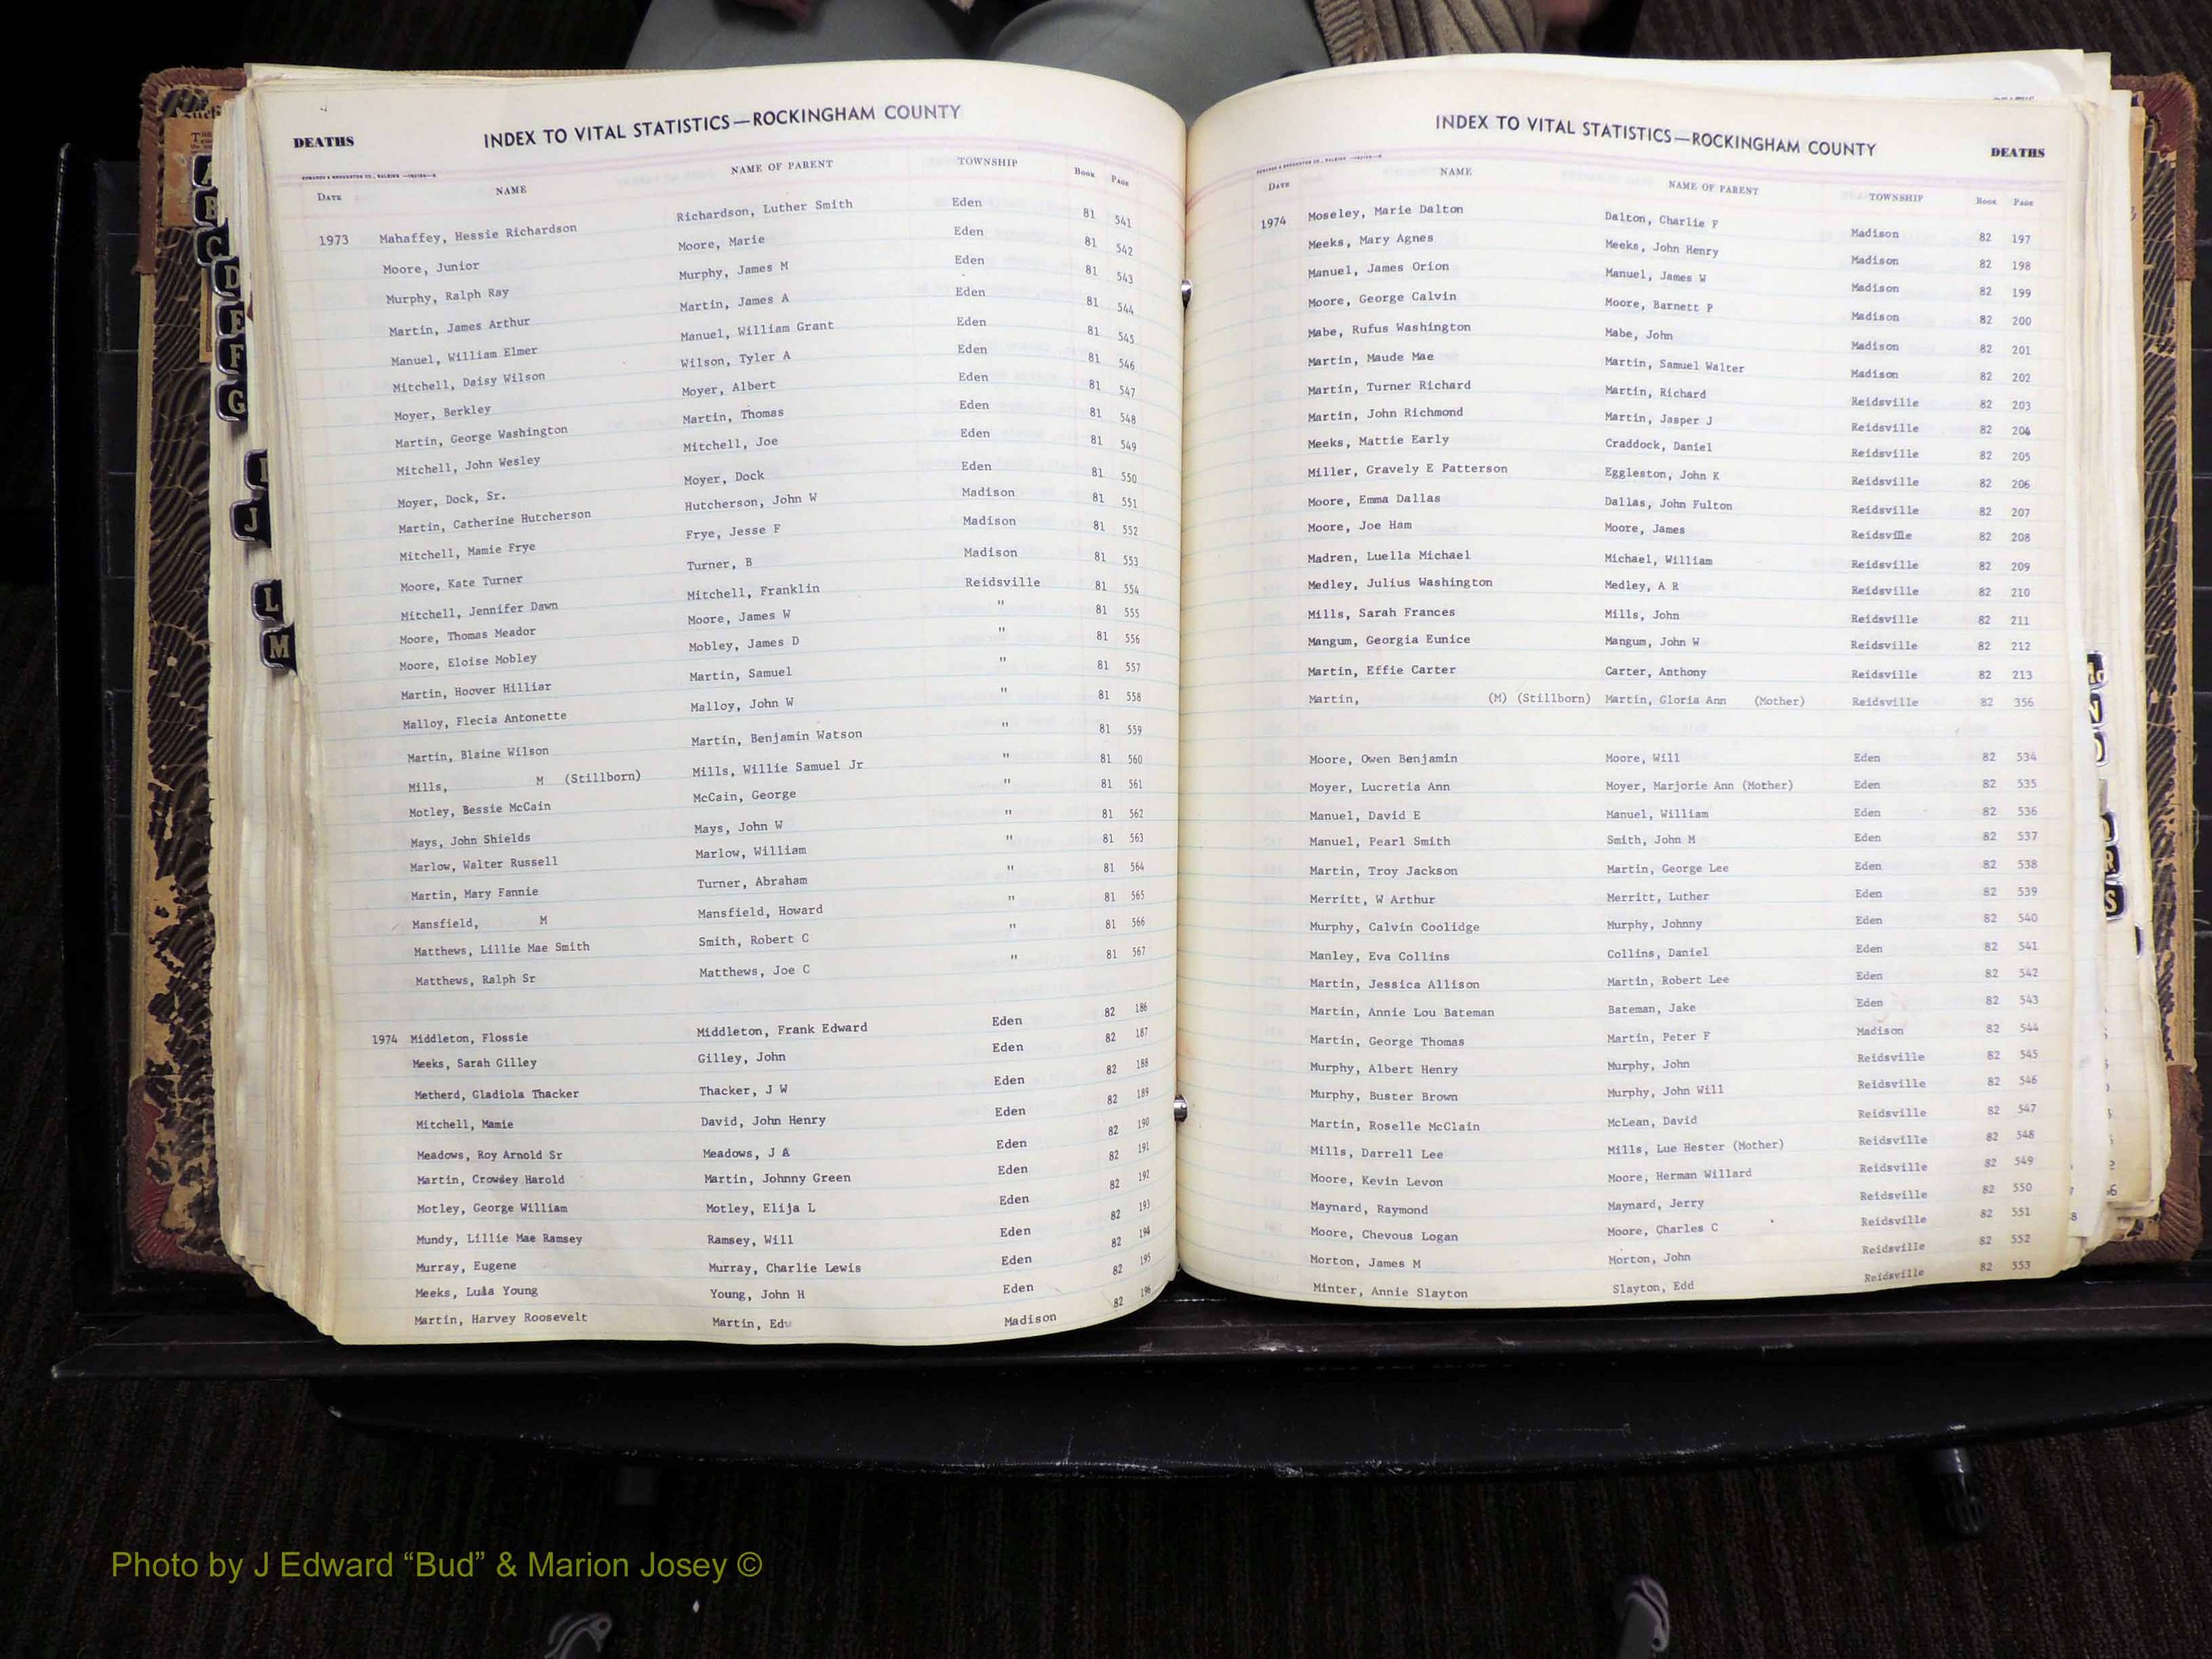 DEATHS
INDEX TO VITAL STATISTICS—ROCKINGHAM COUNTY
DATE NAME NAME OF PARENT TOWNSHIP Book Page
1973 Mahaffey, Hessie Richardson Richardson, Luther Smith Eden 81 541
Moore, Junior Moore, Marie Eden 81 542
Murphy, Ralph Ray Murphy, James M Eden 81 543
Martin, James Arthur Martin, James A Eden 81 544
Manuel, William Elmer Manuel, William Grant Eden 81 545
Mitchell, Daisy Wilson Wilson, Tyler A Eden 81 546
Moyer, Berkley Moyer, Albert Eden 81 547
Martin, George Washington Martin, Thomas Eden 81 548
Mitchell, John Wesley Mitchell, Joe Eden 81 549
Moyer, Dock, Sr. Moyer, Dock Eden 81 550
Martin, Catherine Hutcherson Hutcherson, John W Madison 81 551
Mitchell, Mamie Frye Frye, Jesse F Madison 81 552
Moore, Kate Turner Turner, B Madison 81 553
Mitchell, Jennifer Dawn Mitchell, Franklin Reidsville 81 554
Moore, Thomas Meador Moore, James W " 81 555
Moore, Eloise Mobley Mobley, James D " 81 556
Martin, Hoover Hilliar Martin, Samuel " 81 557
Malloy, Flecia Antonette Malloy, John W " 81 558
Martin, Blaine Wilson Martin, Benjamin Watson " 81 559
Mills, M (Stillborn) Mills, Willie Samuel Jr " 81 560
Motley, Bessie McCain McCain, George " 81 561
Mays, John Shields Mays, John W " 81 562
Marlow, Walter Russell Marlow, William " 81 563
Martin, Mary Fannie Turner, Abraham " 81 564
Mansfield, M Mansfield, Howard " 81 565
Matthews, Lillie Mae Smith Smith, Robert C " 81 566
Matthews, Ralph Sr Matthews, Joe C " 81 567
1974 Middleton, Flossie Middleton, Frank Edward Eden 82 186
Meeks, Sarah Gilley Gilley, John Eden 82 187
Metherd, Gladiola Thacker Thacker, J W Eden 82 188
Mitchell, Mamie David, John Henry Eden 82 189
Meadows, Roy Arnold Sr Meadows, J A Eden 82 190
Martin, Crowdey Harold Martin, Johnny Green Eden 82 191
Motley, George William Motley, Elija L Eden 82 192
Mundy, Lillie Mae Ramsey Ramsey, Will Eden 82 193
Murray, Eugene Murray, Charlie Lewis Eden 82 194
Meeks, Lula Young Young, John H Eden 82 195
Martin, Harvey Roosevelt Martin, Edw Madison 82 196
INDEX TO VITAL STATISTICS—ROCKINGHAM COUNTY
DEATHS
DATE NAME NAME OF PARENT TOWNSHIP Book Page
1974 Moseley, Marie Dalton Dalton, Charlie F Madison 82 197
Meeks, Mary Agnes Meeks, John Henry Madison 82 198
Manuel, James Orion Manuel, James W Madison 82 199
Moore, George Calvin Moore, Barnett P Madison 82 200
Mabe, Rufus Washington Mabe, John Madison 82 201
Martin, Maude Mae Martin, Samuel Walter Madison 82 202
Martin, Turner Richard Martin, Richard Reidsville 82 203
Martin, John Richmond Martin, Jasper J Reidsville 82 204
Meeks, Mattie Early Craddock, Daniel Reidsville 82 205
Miller, Gravely E Patterson Eggleston, John K Reidsville 82 206
Moore, Emma Dallas Dallas, John Fulton Reidsville 82 207
Moore, Joe Ham Moore, James Reidsville 82 208
Madren, Luella Michael Michael, William Reidsville 82 209
Medley, Julius Washington Medley, A R Reidsville 82 210
Mills, Sarah Frances Mills, John Reidsville 82 211
Mangum, Georgia Eunice Mangum, John W Reidsville 82 212
Martin, Effie Carter Carter, Anthony Reidsville 82 213
Martin, (M) (Stillborn) Martin, Gloria Ann (Mother) Reidsville 82 356
Moore, Owen Benjamin Moore, Will Eden 82 534
Moyer, Lucretia Ann Moyer, Marjorie Ann (Mother) Eden 82 535
Manuel, David E Manuel, William Eden 82 536
Manuel, Pearl Smith Smith, John M Eden 82 537
Martin, Troy Jackson Martin, George Lee Eden 82 538
Merritt, W Arthur Merritt, Luther Eden 82 539
Murphy, Calvin Coolidge Murphy, Johnny Eden 82 540
Manley, Eva Collins Collins, Daniel Eden 82 541
Martin, Jessica Allison Martin, Robert Lee Eden 82 542
Martin, Annie Lou Bateman Bateman, Jake Eden 82 543
Martin, George Thomas Martin, Peter F Madison 82 544
Murphy, Albert Henry Murphy, John Reidsville 82 545
Murphy, Buster Brown Murphy, John Will Reidsville 82 546
Martin, Roselle McClain McLean, David Reidsville 82 547
Mills, Darrell Lee Mills, Lue Hester (Mother) Reidsville 82 548
Moore, Kevin Levon Moore, Herman Willard Reidsville 82 549
Maynard, Raymond Maynard, Jerry Reidsville 82 550
Moore, Chevous Logan Moore, Charles C Reidsville 82 551
Morton, James M Morton, John Reidsville 82 552
Minter, Annie Slayton Slayton, Edd Reidsville 82 553
A
B
C
D
E
F
G
J
L
M
N
O
R
S
Photo by J Edward “Bud” & Marion Josey ©